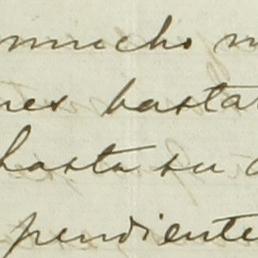 mucho
nes basta
hasta su
pendiente